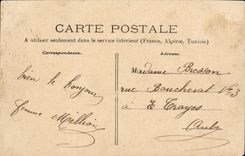 CARTE POSTALE
A utiliser seulement dans le service intérieur (France, Algérie, Tunisie)
Correspondance.
Adresse.
Madame Bresson
rue Boucherat N° 3
à Troyes
Aube
bien le bonjour
femme Million